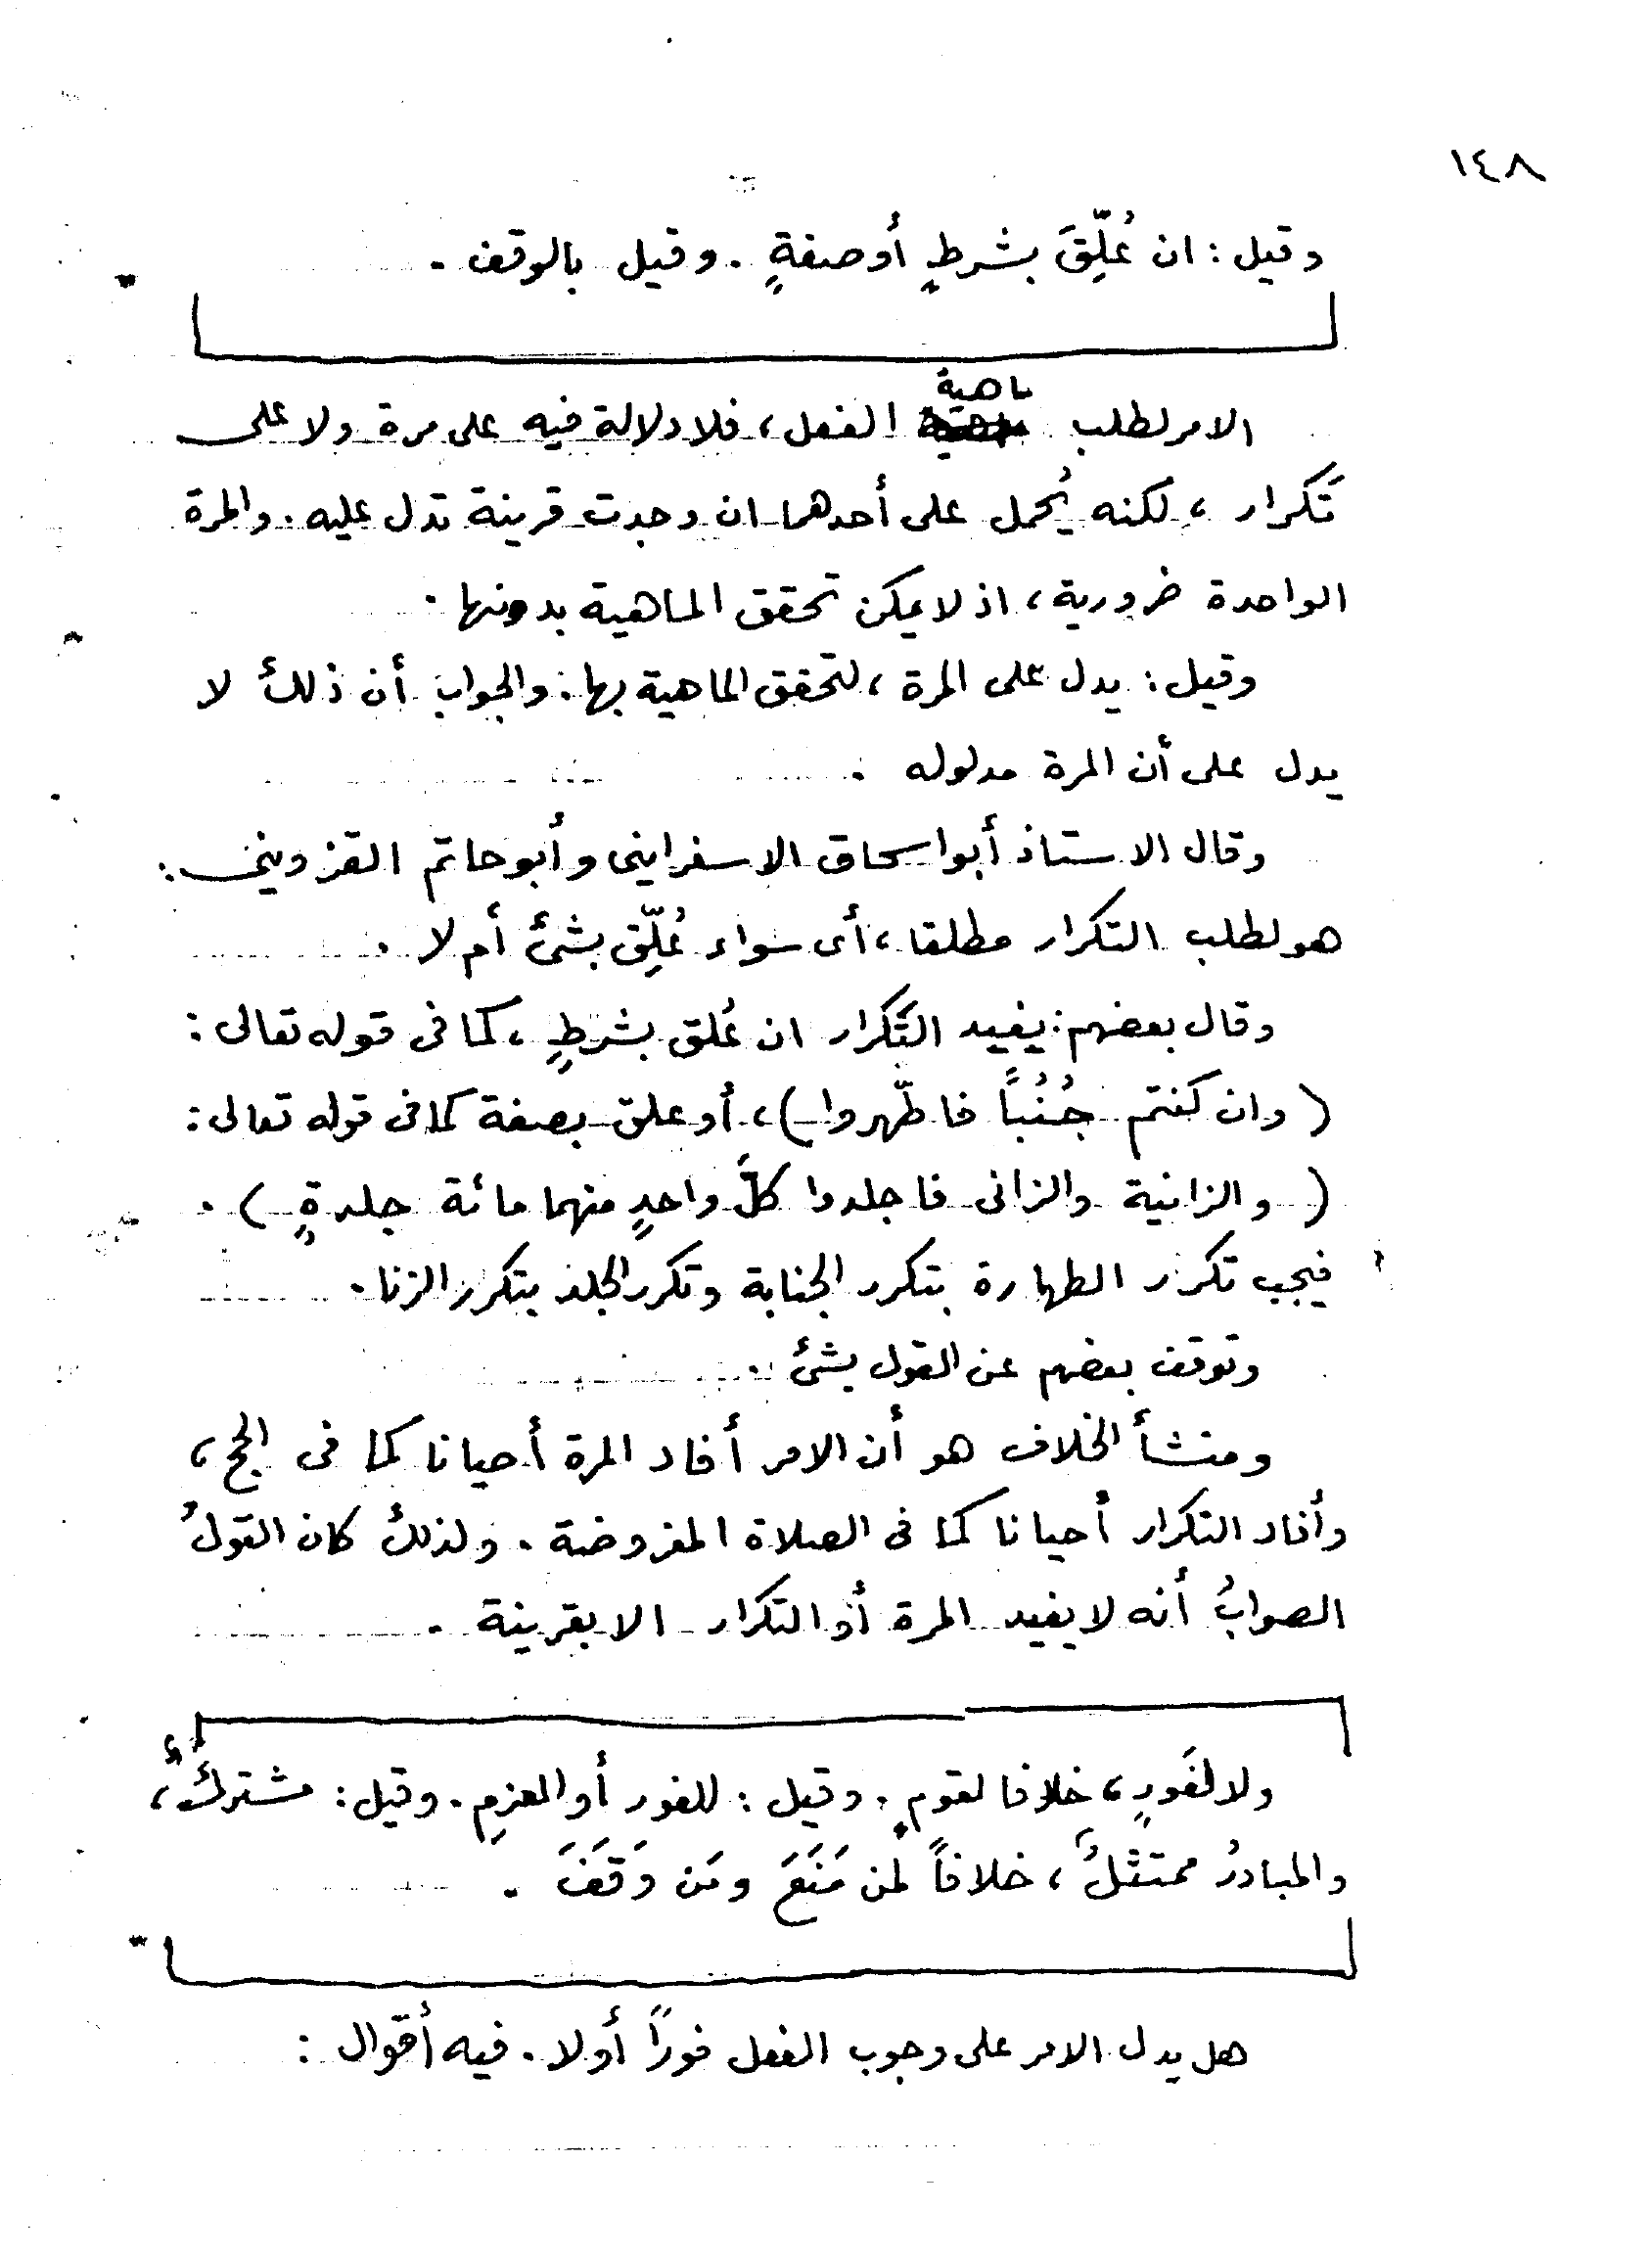 ١٤٨
وقيل : ان عُلِّقَ بشرطٍ أو صفةٍ . وقيل بالوقف .
الامر لطلب ماهية الفعل ، فلا دلالة فيه على مرة ولا على
تَكرار ، لكنه يُحمل على أحدهما ان وجدت قرينة تدل عليه . والمرة
الواحدة ضرورية ، اذ لا يمكن تحقق الماهية بدونها .
وقيل : يدل على المرة ، لتحقق الماهية بها . والجواب أن ذلك لا
يدل على أن المرة مدلوله .
وقال الاستاذ أبو اسحاق الاسفراينى وأبو حاتم القزوينى :
هو لطلب التكرار مطلقا ، أى سواء عُلِّق بشئ أم لا .
وقال بعضهم : يفيد التَّكرار ان عُلق بشرطٍ ، كما فى قوله تعالى :
( وان كنتم جُنُباً فاطّهروا ) ، أو علق بصفة كما فى قوله تعالى :
( والزانية والزانى فاجلدوا كلَّ واحدٍ منهما مائة جلدةٍ ) .
فيجب تكرر الطهارة بتكرر الجنابة وتكرر الجلد بتكرر الزنا .
وتوقف بعضهم عن القول بشئ .
ومنشأ الخلاف هو أن الامر أفاد المرة أحيانا كما فى الحج ،
وأفاد التكرار أحيانا كما فى الصلاة المفروضة . ولذلك كان القولُ
الصوابُ أنه لا يفيد المرة أو التكرار الا بقرينة .
ولا لفَورٍ ، خلافا لقومٍ . وقيل : للفور أو العزمِ . وقيل : مشتركٌ ،
والمبادرُ ممتثلٌ ، خلافاً لمن مَنَعَ ومَن وَقَفَ .
هل يدل الامر على وجوب الفعل فوراً أو لا . فيه أقوال :